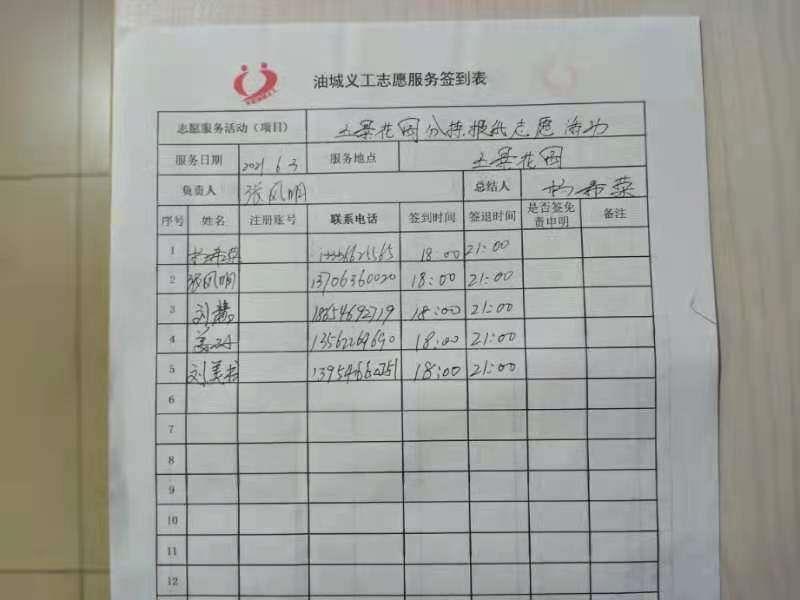 油城义工志愿服务签到表
志愿服务活动（项目） 花园分拣报纸志愿活动
服务日期 2021 6.3 服务地点 花园
负责人 张凤明 总结人
序号 姓名 注册账号 联系电话 签到时间 签退时间 是否签免责申明 备注
1 18:00 21:00
2 张凤明 13706360020 18:00 21:00
3 刘慧 18654692719 18:00 21:00
4 13562269690 18:00 21:00
5 刘美 18:00 21:00
6
7
8
9
10
11
12